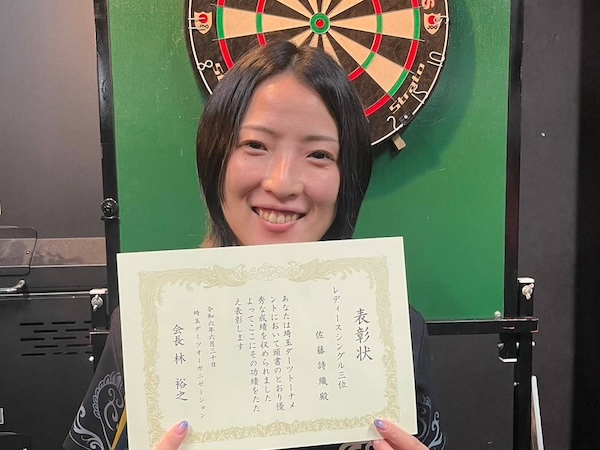 表彰状
レディースシングル三位
佐藤詩織殿
あなたは埼玉ダーツトーナメ
ントにおいて頭書のとおり優
秀な成績を収められました
よってここにその功績をたた
え表彰します
令和六年六月三十日
埼玉ダーツオーガニゼーション
会長 林 裕之
Strato
8
2
15
10